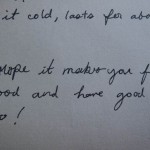 it cold, lasts for abo
Hope it makes you f
ood and have good
o!